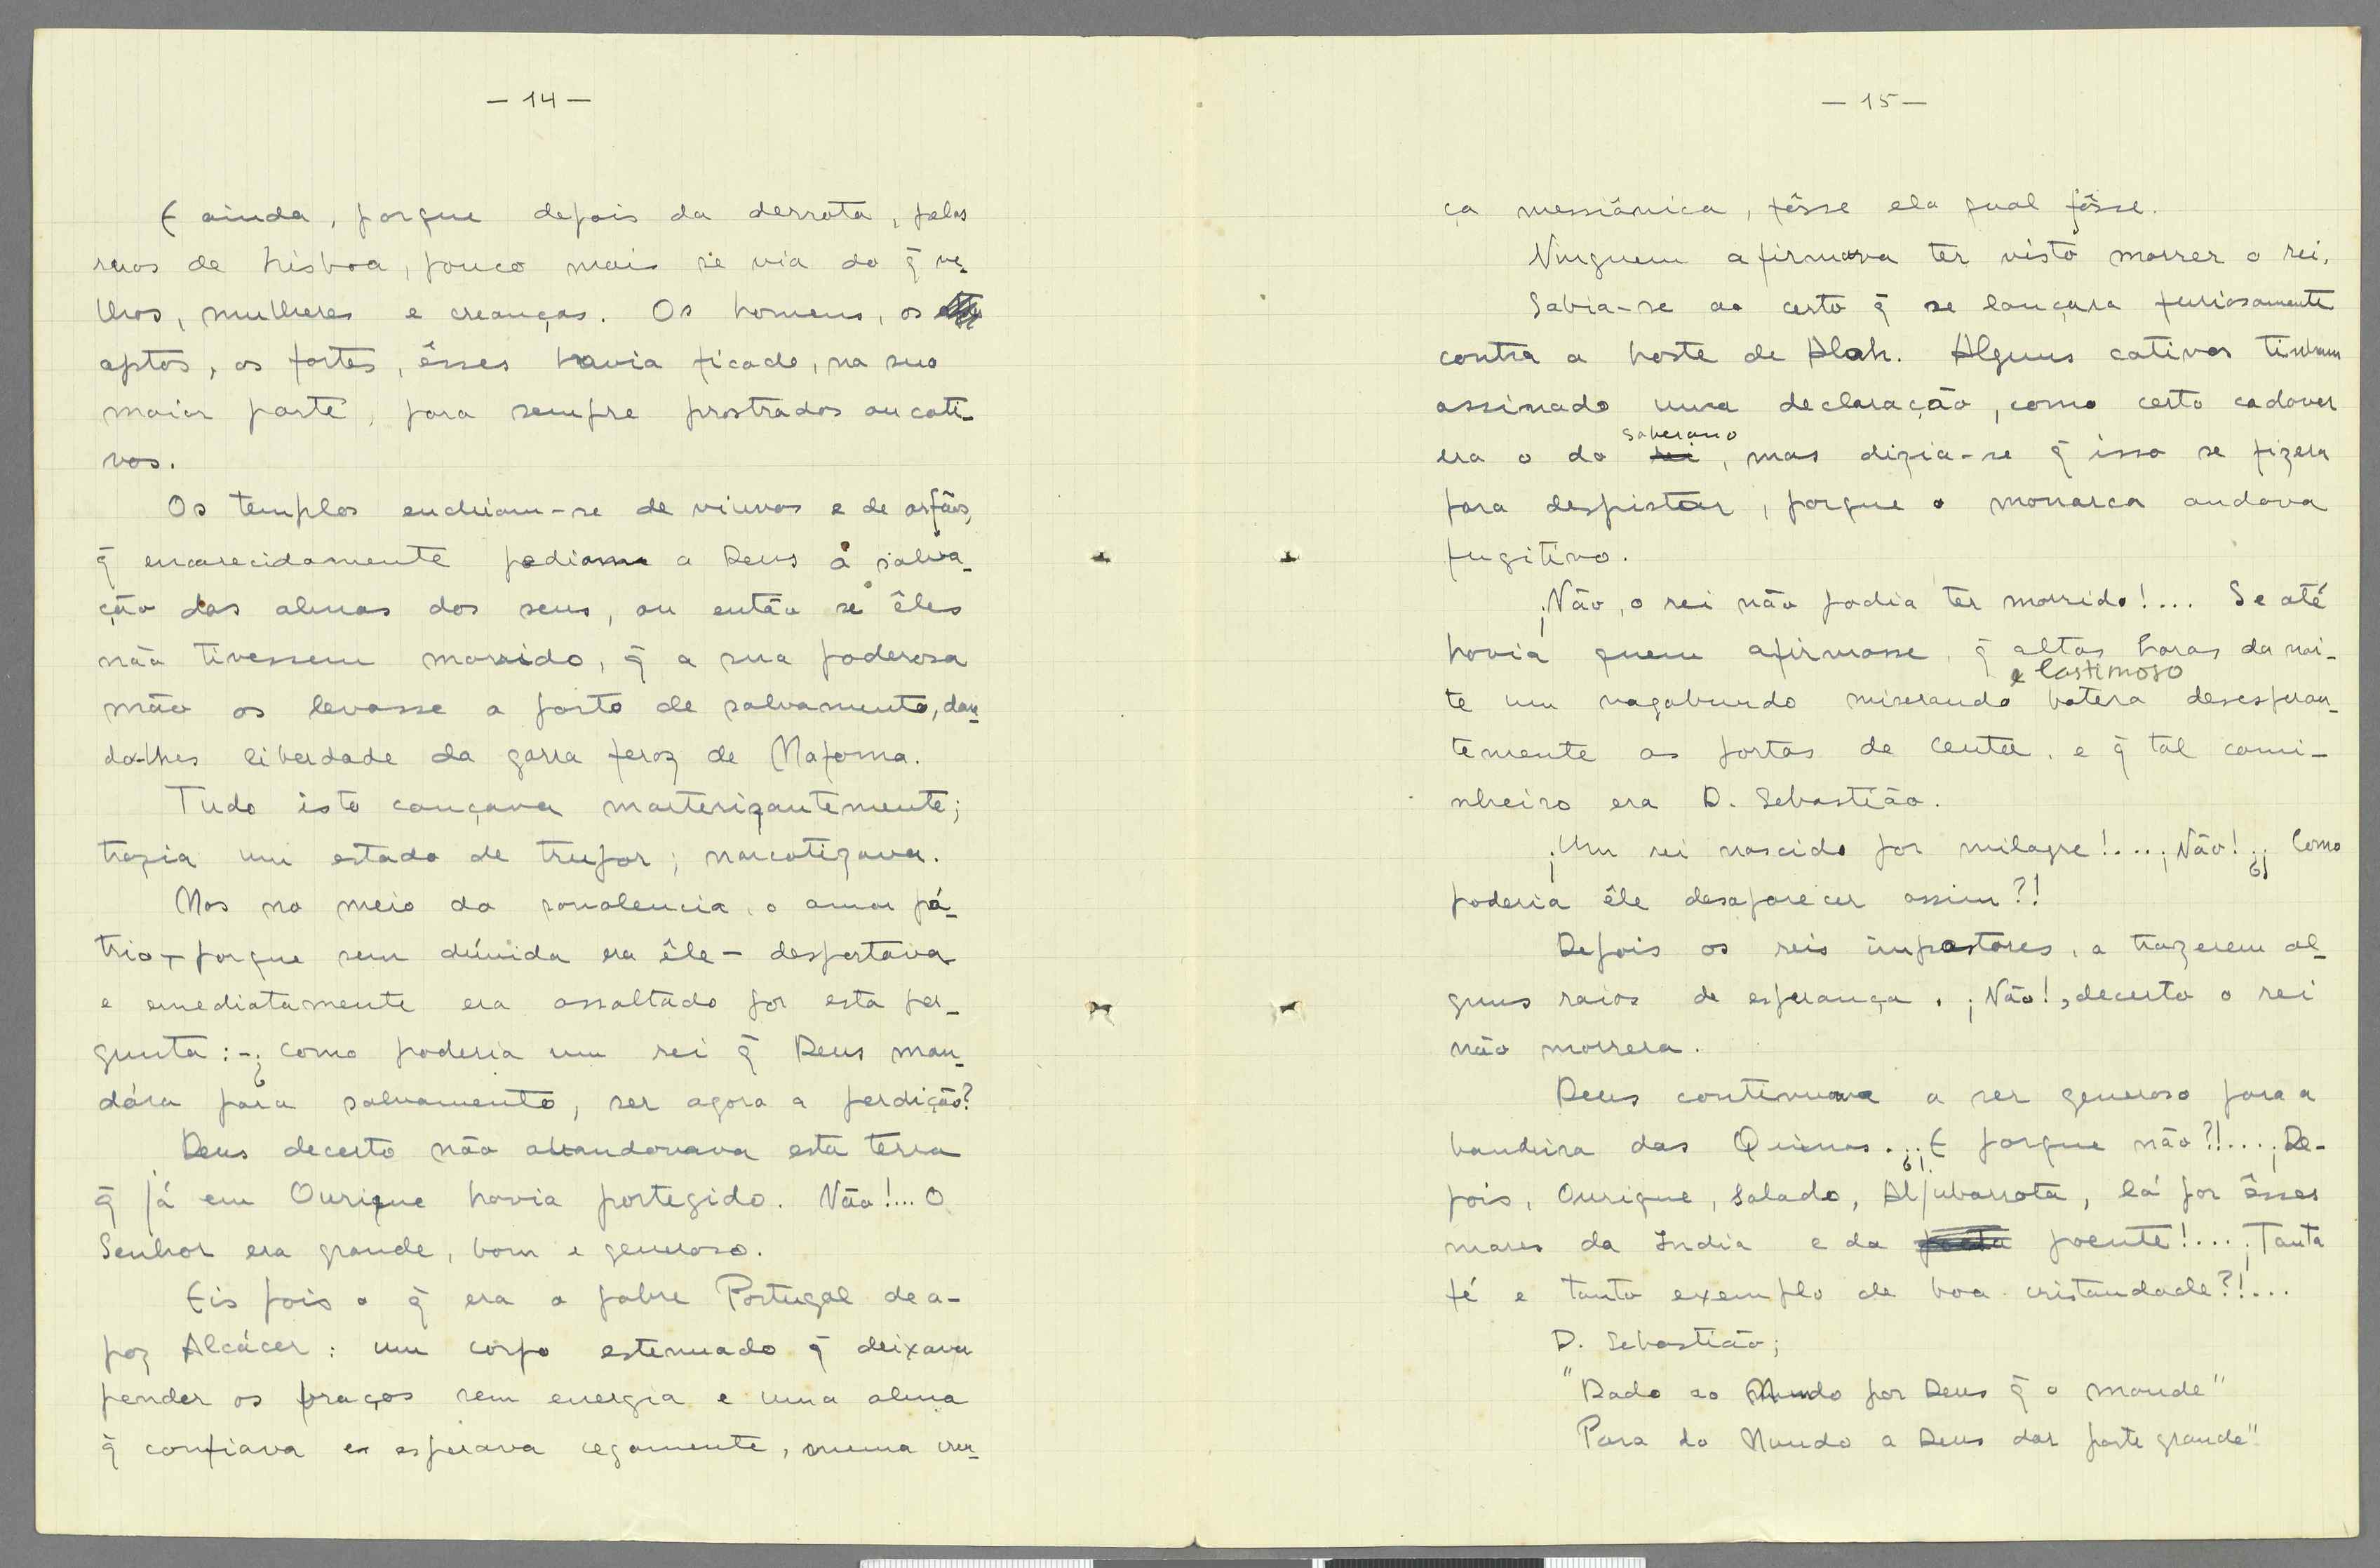 — 14 —
E ainda, porque depois da derrota, pelas
ruas de Lisboa, pouco mais se via do q̃ ve-
lhos, mulheres e creanças. Os homens, os
aptos, os fortes, êsses havia ficado, na sua
maior parte, para sempre prostrados ou cati-
vos.
Os templos enchiam-se de viuvas e de orfãos,
q̃ encarecidamente pediam a Deus a salva-
ção das almas dos seus, ou então se êles
não tivessem morrido, q̃ a sua poderosa
mão os levasse a porto de salvamento, dan-
do-lhes liberdade da garra feroz de Mafoma.
Tudo isto cançava marterizantemente;
trazia um estado de trupor; narcotizava.
Mas no meio da sonolencia, o amor pá-
trio — porque sem dúvida era êle — despertava
e emediatamente era assaltado por esta per-
gunta: - ¿como poderia um rei q̃ Deus man-
dára para salvamento, ser agora a perdição?
Deus decerto não abandonava esta terra
q̃ já em Ourique havia portegido. Não!... O
Senhor era grande, bom e generoso.
Eis pois o q̃ era o pobre Portugal de a-
poz Alcácer: um corpo estenuado q̃ deixava
pender os braços sem energia e uma alma
q̃ confiava e esperava cegamente, numa cren-
— 15 —
ça messiânica, fôsse ela qual fôsse.
Ninguem afirmava ter visto morrer o rei.
Sabia-se ao certo q̃ se lançara furiosamente
contra a hoste de Alah. Alguns cativos tinham
assinado uma declaração, como certo cadaver
era o do rei soberano, mas dizia-se q̃ isso se fizera
para despistar, porque o monarca andava
fugitivo.
¡Não, o rei não podia ter morrido!... Se até
havia quem afirmasse, q̃ altas horas da noi-
te um vagabundo miserando e lastimoso batera desesperan-
temente as portas de Ceuta, e q̃ tal cami-
nheiro era D. Sebastião.
¡Um rei nascido por milagre!... ¡Não! ¿¡Como
poderia êle desaparecer assim?!
Depois os reis impostores, a trazerem al-
guns raios de esperança. ¡Não!, decerto o rei
não morrera.
Deus continuava a ser generoso para a
bandeira das Quinas... ¿¡E porque não?!... ¡De-
pois, Ourique, Salado, Aljubarrota, lá por êsses
mares da India e da poente!... ¡Tanta
fé e tanto exemplo de boa cristandade?!...
D. Sebastião;
"Dado ao Mundo por Deus q̃ o mande"
Para do Mundo a Deus dar parte grande"